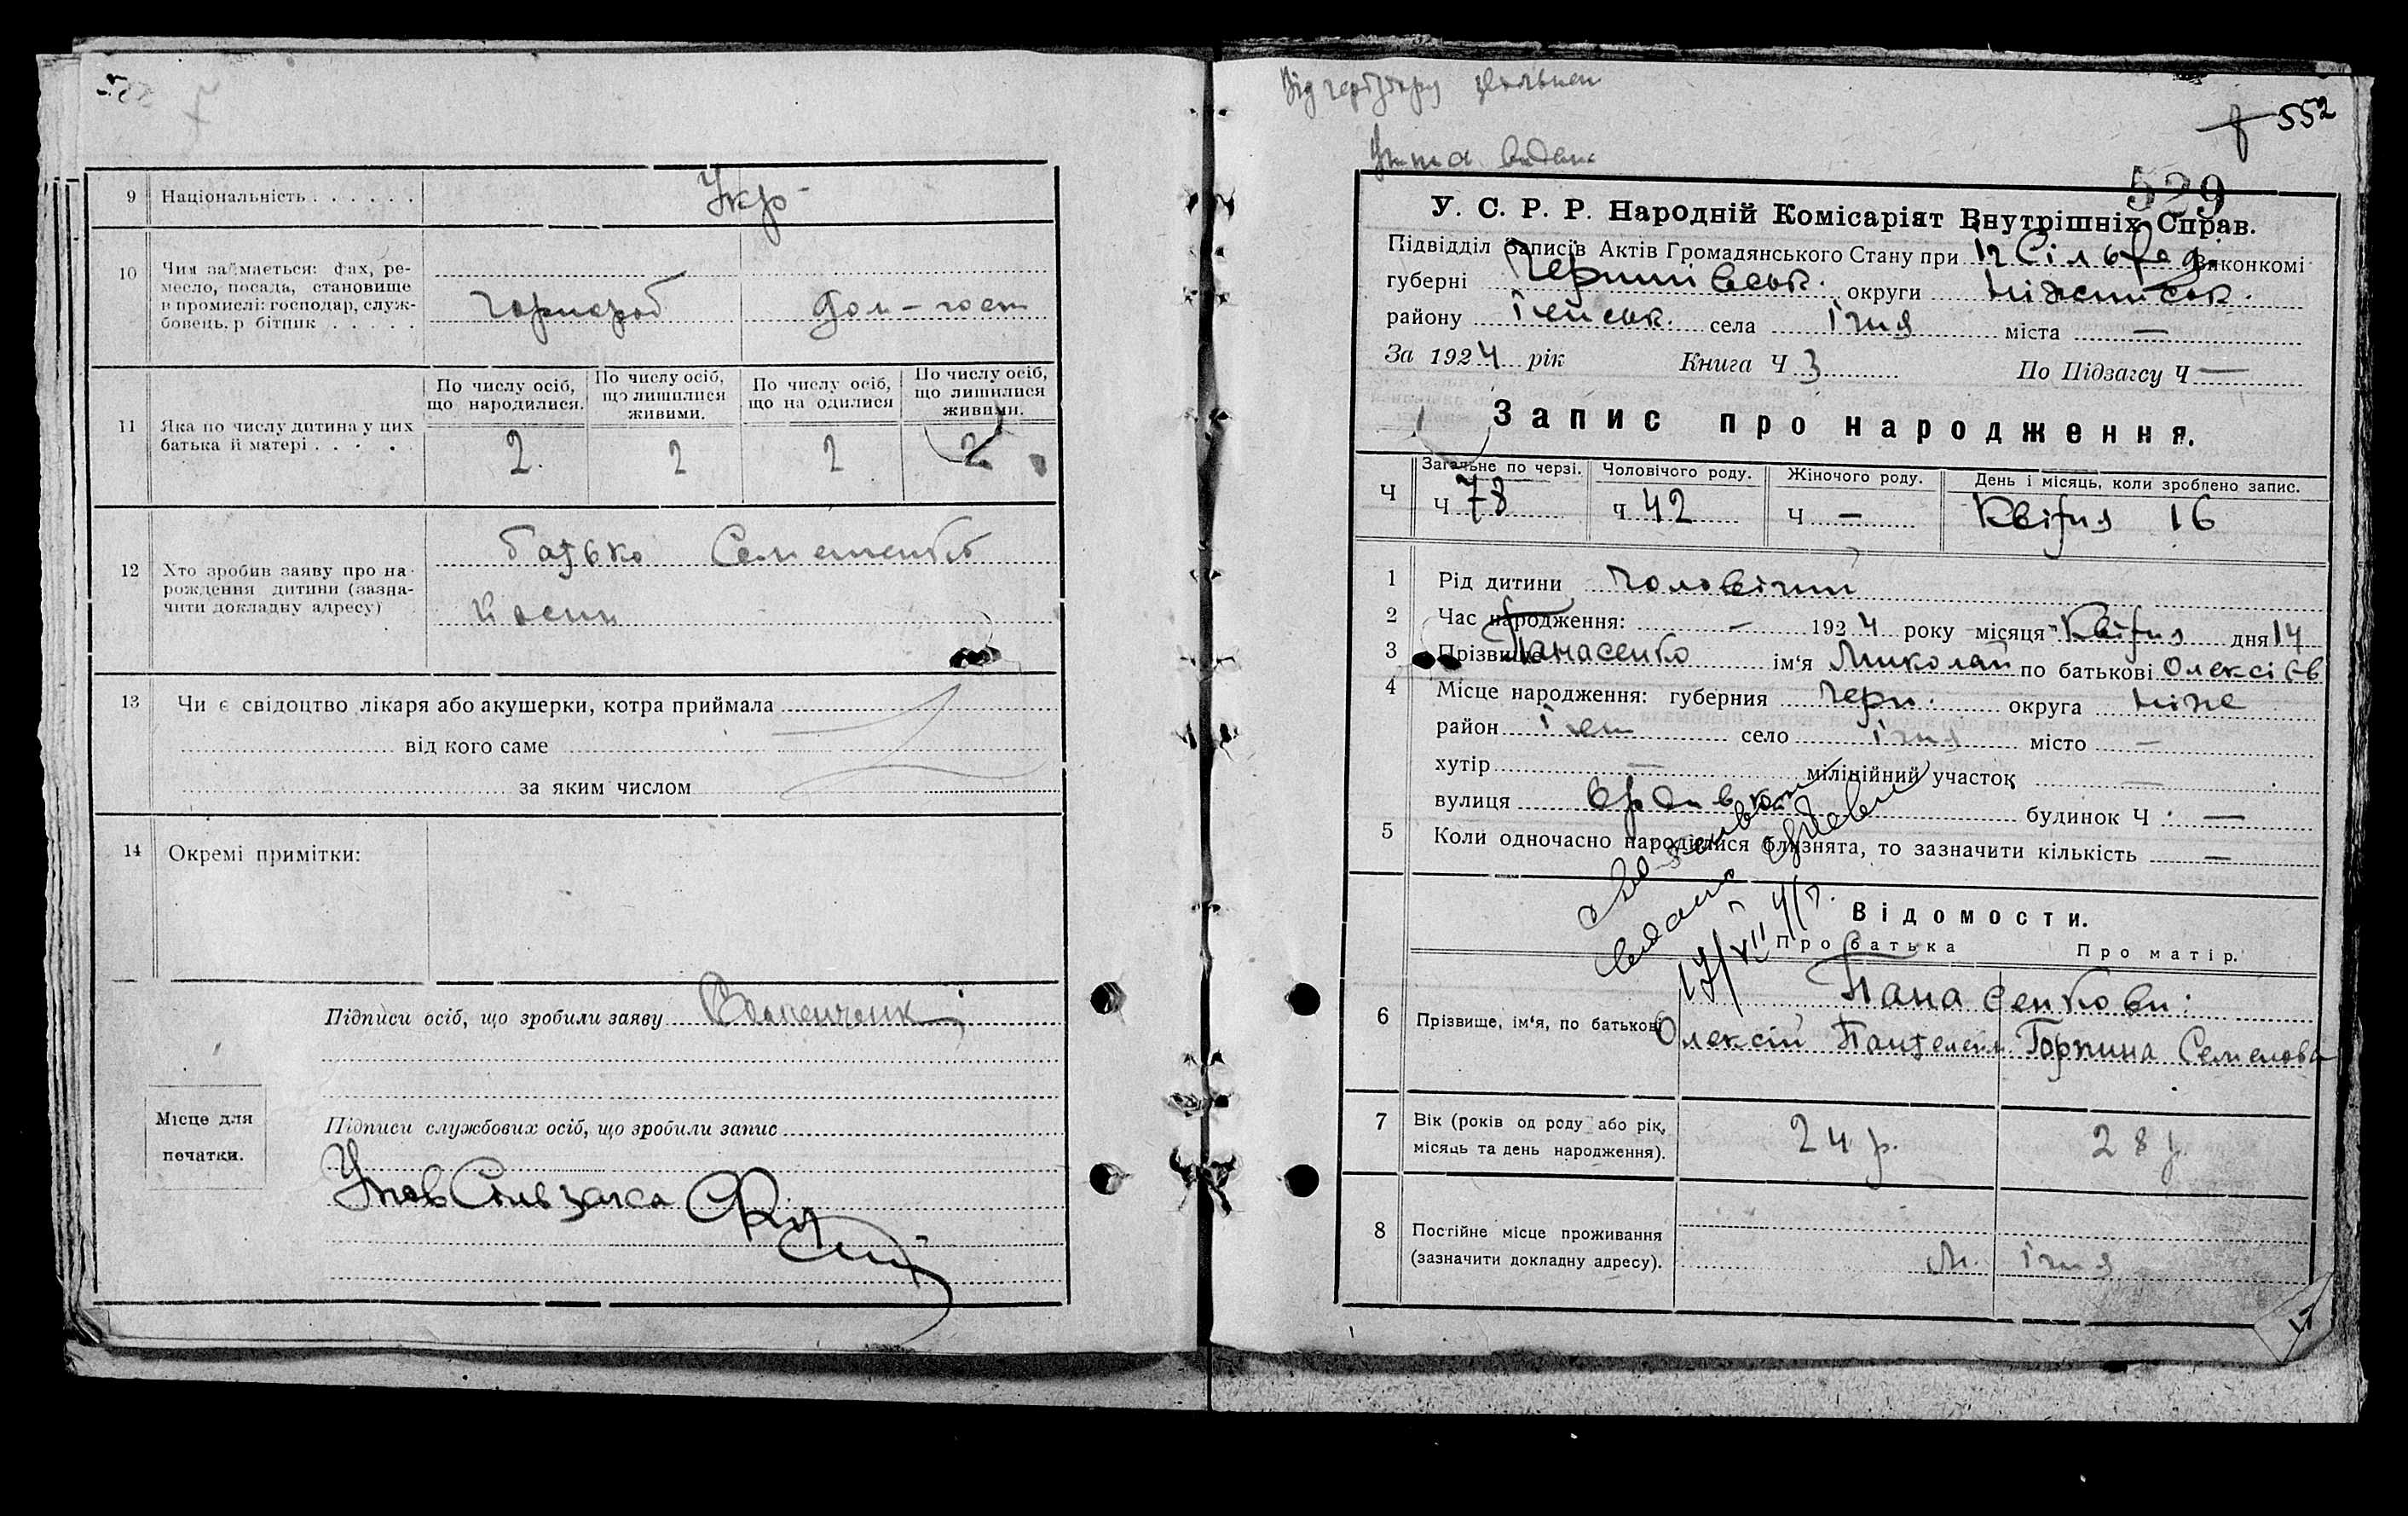 9 Національність . . . . . . Укр-
10 Чим займається: фах, ре-
месло, посада, становище
в промислі: господар, служ-
бовець, р бітник . . . . .
дом-госп
11 Яка по числу дитина у цих
батька й матері . . . .
По числу осіб,
що народилися.
По числу осіб,
що лишилися
живими.
По числу осіб,
що на одилися
По числу осіб,
що лишилися
живими.
2. 2 2 2
12 Хто зробив заяву про на-
рождення дитини (зазна-
чити докладну адресу)
батько
13 Чи є свідоцтво лікаря або акушерки, котра приймала
від кого саме
за яким числом
14 Окремі примітки:
Підписи осіб, що зробили заяву
Підписи службових осіб, що зробили запис
Місце для
печатки.
552
529
У. С. Р. Р. Народній Комісаріят Внутрішніх Справ.
Підвідділ Записів Актів Громадянського Стану при Іч Сільраді Виконкомі
губерні Чернигівськ. округи Ніженськ.
району Іченськ. села Ічня міста —
За 1924 рік Книга Ч 3 По Підзагсу Ч —
Запис про народження.
Ч
Загальне по черзі. Чоловічого роду. Жіночого роду. День і місяць, коли зроблено запис.
Ч 78 Ч 42 Ч — Квітня 16
1 Рід дитини чоловічий
2 Час народження: — 1924 року місяця Квітня дня 14
3 Прізвище Панасенко ім‘я Миколай по батькові Олексіїв
4 Місце народження: губерния Черн. округа Ніже
район Ічен село Ічня місто —
хутір — міліційний участок —
вулиця будинок Ч —
5 Коли одночасно народилися близнята, то зазначити кількість —
17/VII
Відомости.
Про батька Про матір.
6 Прізвище, ім‘я, по батькові
Панасенкови:
Олексій Пантелейм. Горпина Семенова
7 Вік (років од роду або рік,
місяць та день народження).
24 р. 28 р.
8 Постійне місце проживання
(зазначити докладну адресу).
м. Ічня